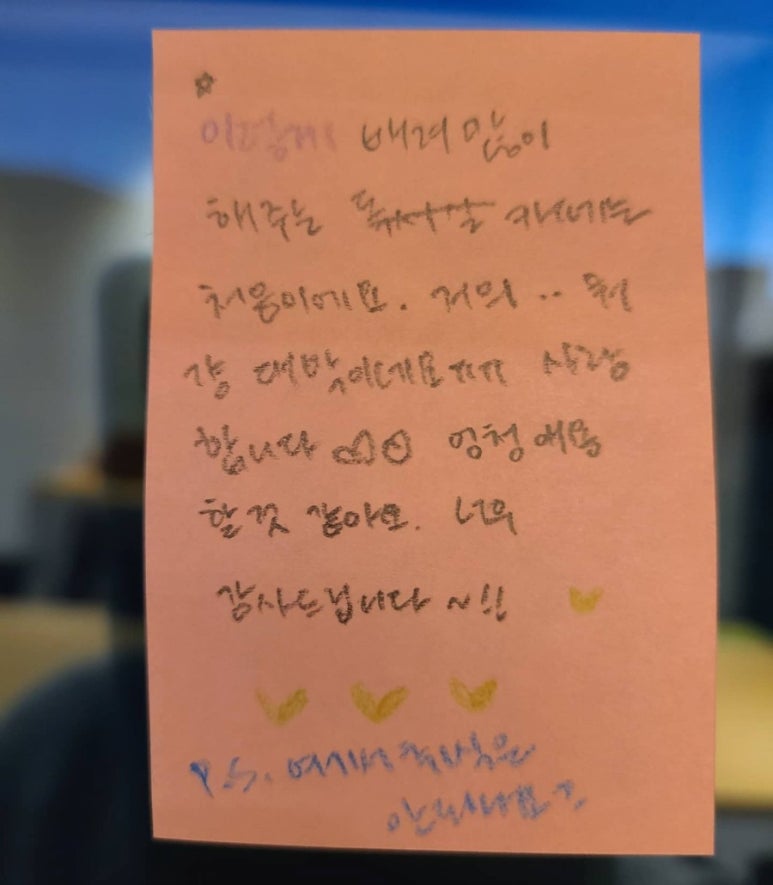 이렇게 배려많이
해주는 카페는
처음이에요. ..
대박이네요ㅠㅠ 사랑
합니다 엄청 애용
할것 같아요. 너무
감사드립니다 ~!!
P.S. 여기서
안되나요?